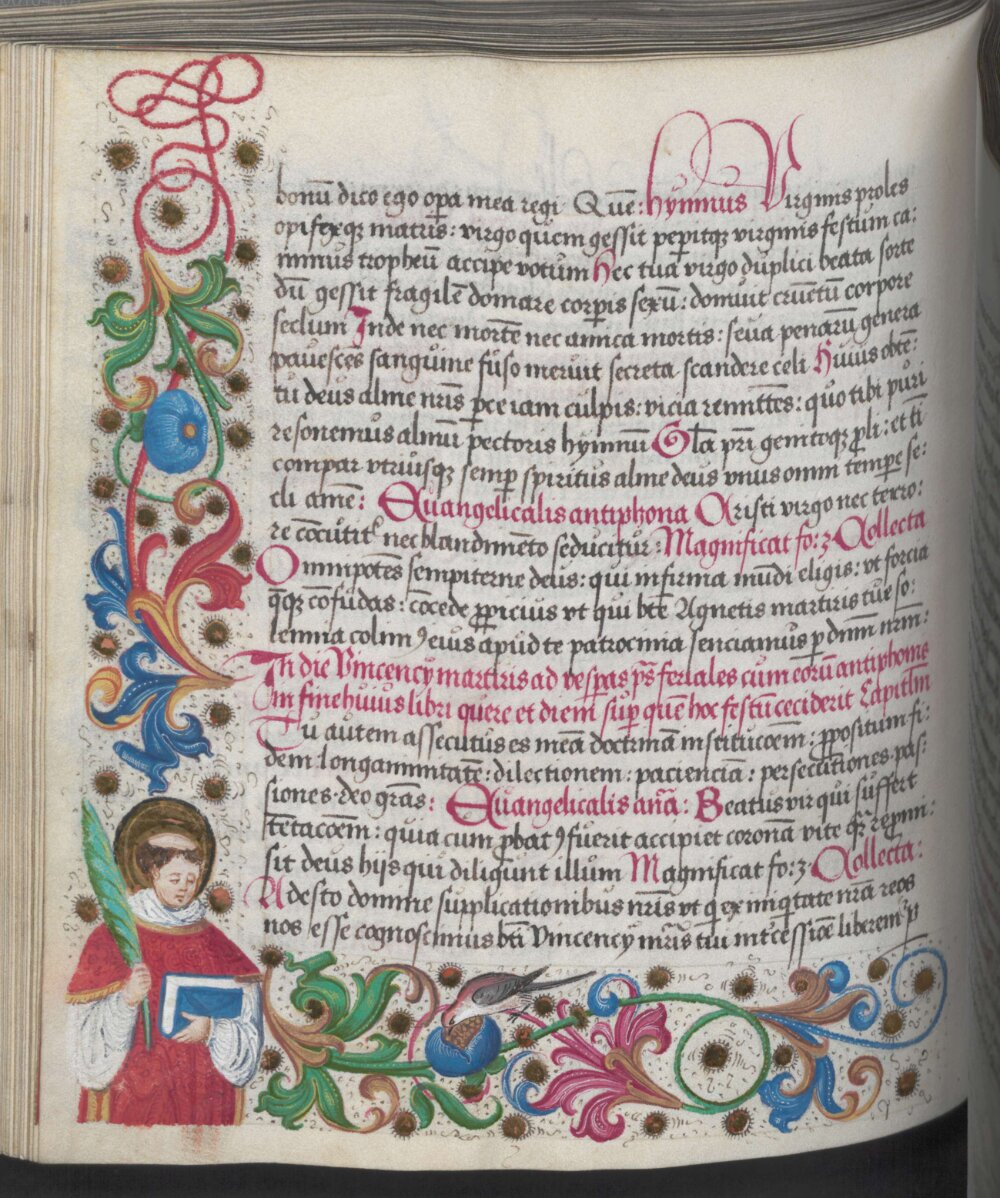 bonū dico ego opa mea regi Que: hymnus Virginis proles
opifexqȝ matris: virgo quem gessit peperitqȝ virginis festum ca:
nimus tropheū accipe votum Hec tua virgo duplici beata sorte
dū gessit fragilē domare corpis sexū: domuit cruētū corpore
seclum Inde nec mortē nec amica mortis: seua penarū genera
pauescēs sanguine fuso meruit secreta scandere celi Huius obtē:
tu deus alme nris pce iam culpis: vicia remittēs: quo tibi puri
resonemus almū pectoris hymnū Gla pri genitoqȝ pli: et ti
compar vtriusqȝ semp spiritus alme deus vnus omni tempe se:
cli amē: Euangelicalis antiphona Cristi virgo nec terro:
re cōcutitr nec blandimēto seducitur: Magnificat fo: 3 Collecta
Omnipotēs sempiterne deus: qui infirma mūdi eligis: vt forcia
qqȝ cōfūdas: cōcede ppicius vt qui btē Agnetis martiris tue so:
lemnia colim9 eius apud te patrocinia senciamus p dnm nrm:
In die Vincency martiris ad vespas ps feriales cum eorū antiphonis
In fine huius libri quere et diem sup quē hoc festū ceciderit Capitlm
Tu autem assecutus es meā doctrinā institucoem: ppositum fi:
dem longanimitatē: dilectionem: pacienciā: persecutiones pas:
siones deo gras: Euangelicalis aña: Beatus vir qui suffert
tētacoem: quia cum pbat9 fuerit accipiet coronā vite qr repmi:
sit deus hijs qui diligunt illum Magnificat fo: 3 Collecta:
Adesto domine supplicationibus nris vt q ex iniqtate nrā reos
nos esse cognoscimus bti Vincency mris tui intcessiōe liberemr p